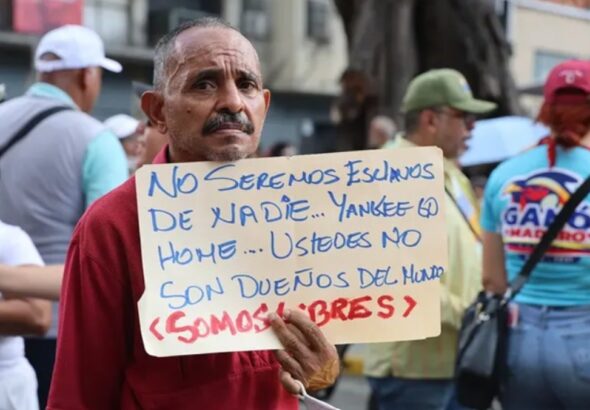 NO SEREMOS ESCLAVOS
DE NADIE... YANKEE GO
HOME... USTEDES NO
SON DUEÑOS DEL MUNDO
<SOMOS LIBRES>
GANÓ
MADURO